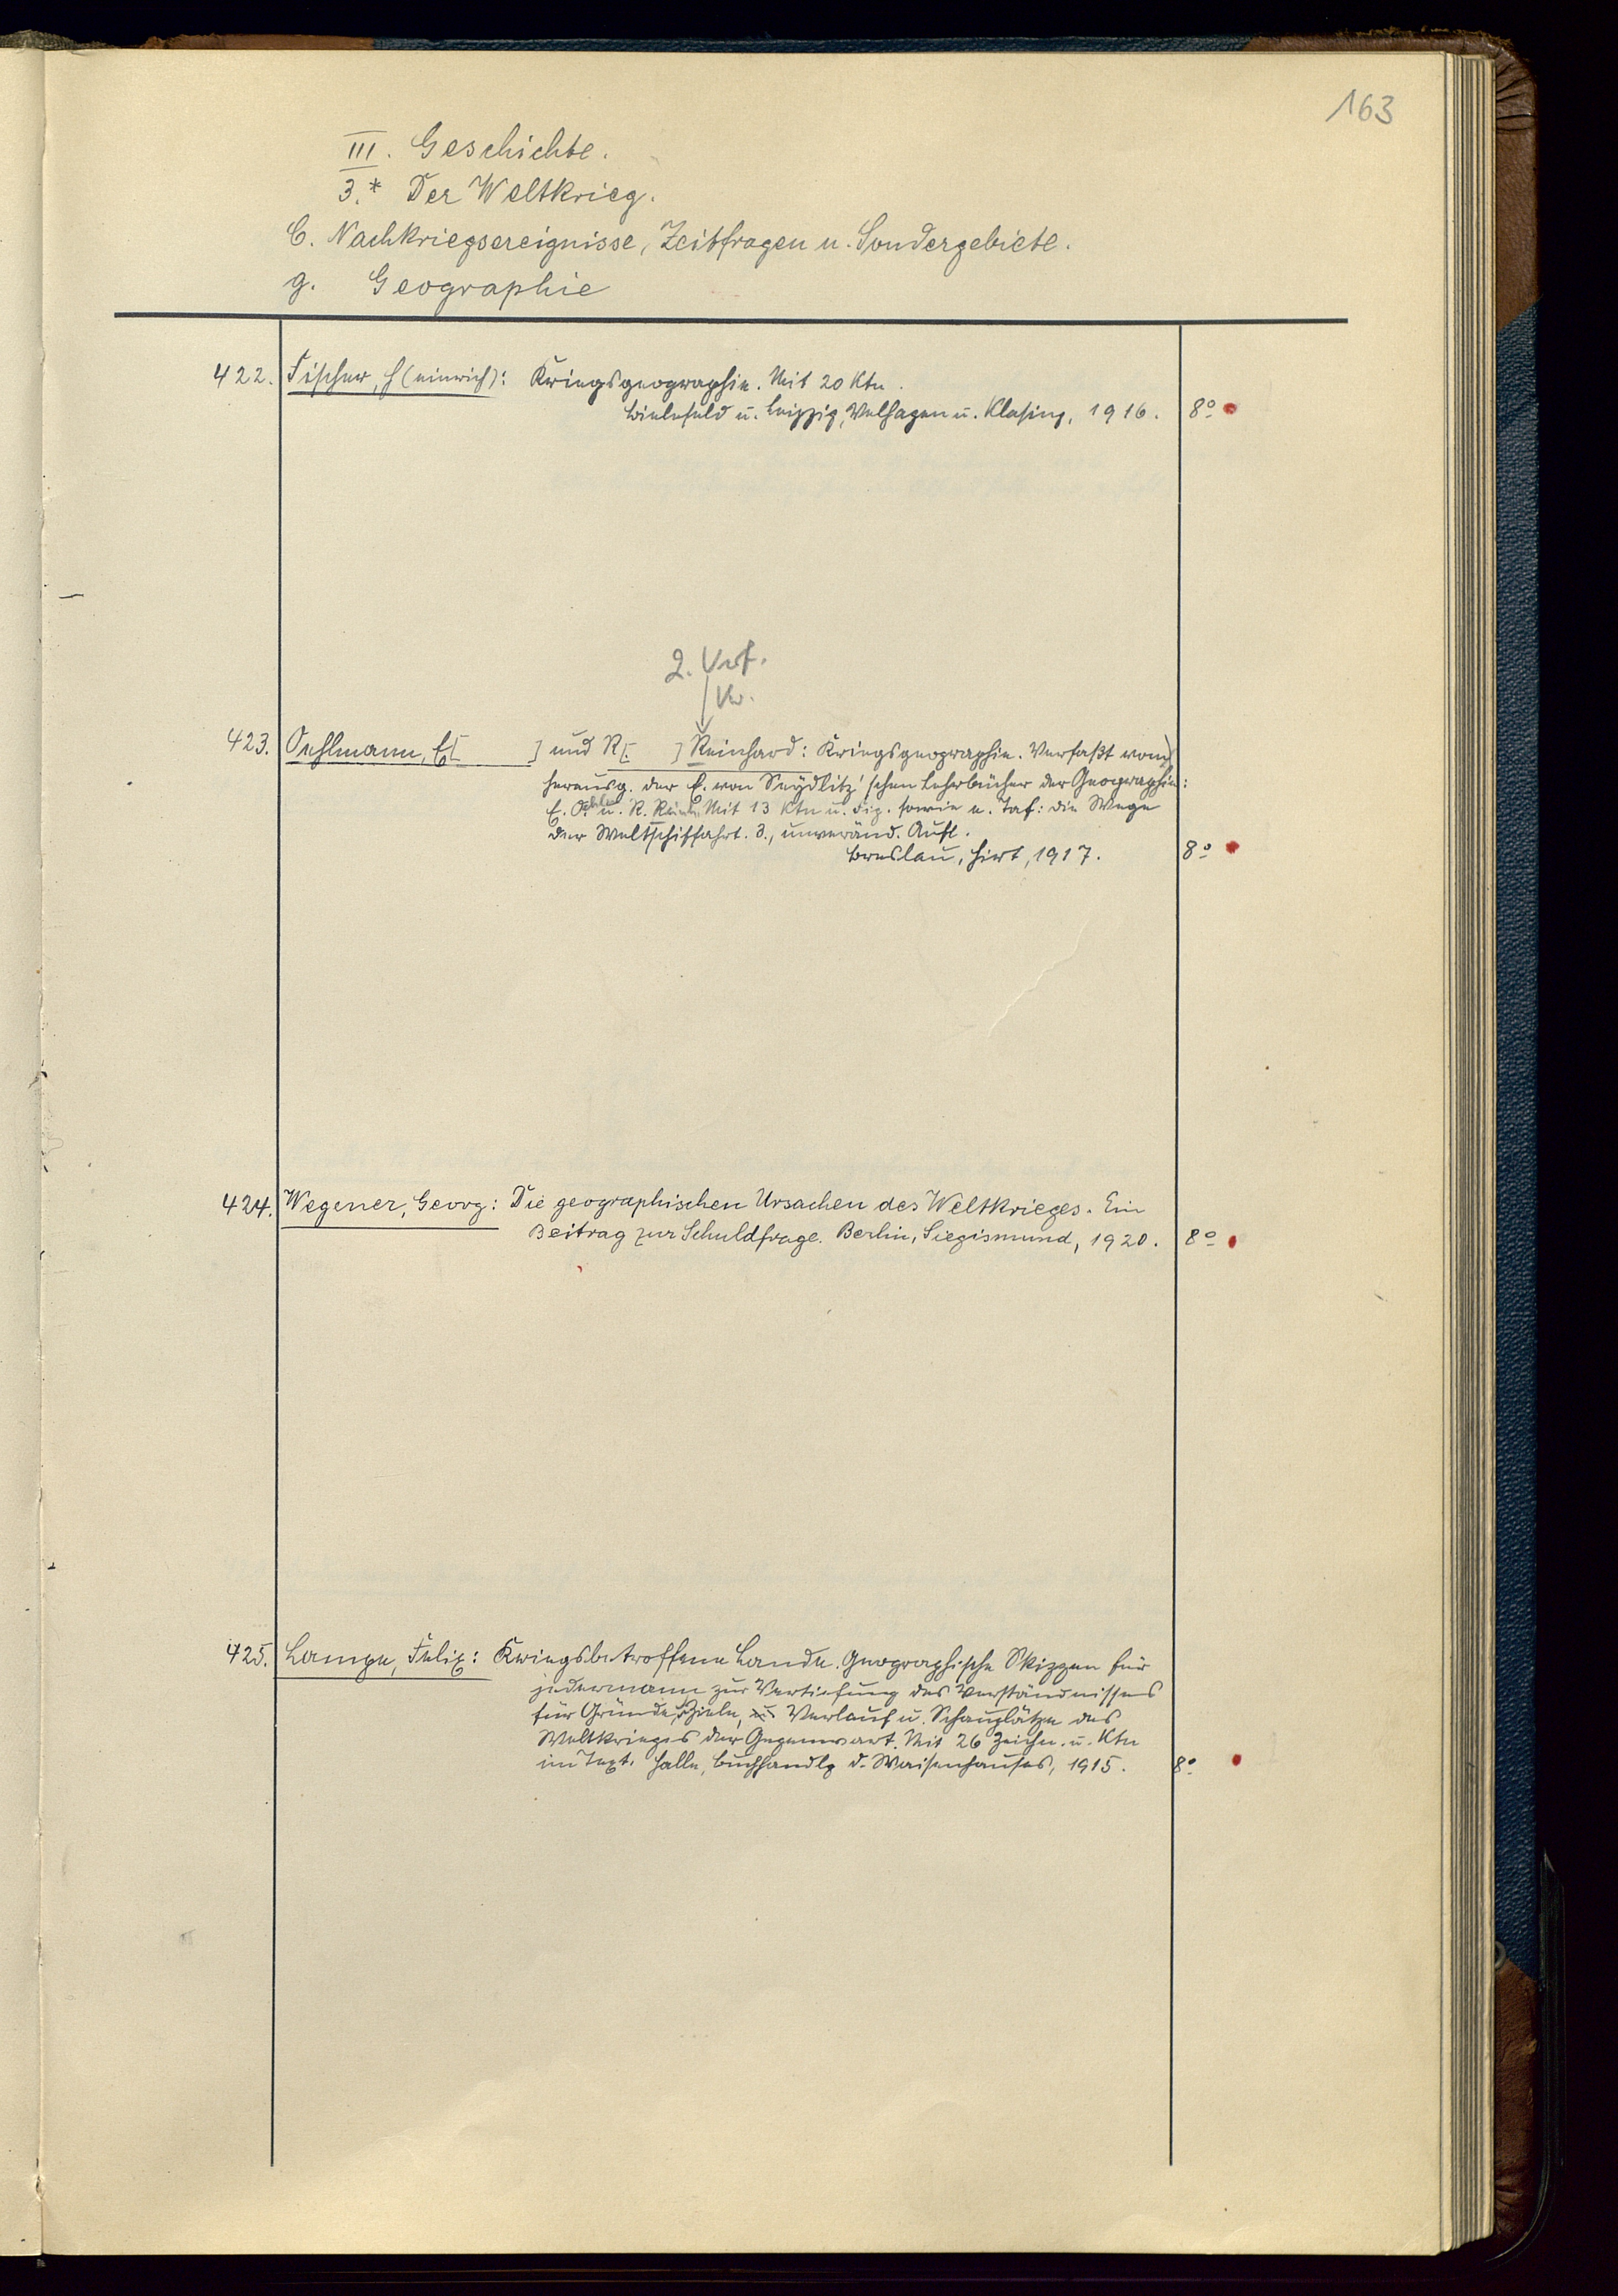 163
III. Geschichte.
3.* Der Weltkrieg.
C. Nachkriegsereignisse, Zeitfragen u. Sondergebiete.
g. Geographie
422. Fischer, H(einrich): Kriegsgeographie. Mit 20 Ktn.
Bielefeld u. Leipzig, Velhagen u. Klasing, 1916. 8°
2. Verf.
Vw.
423. Oehlmann, E[ ] und R[ ] Reinhard: Kriegsgeographie. Verfaßt von
herausg. der E. von Seydlitz'schen Lehrbücher der Geographie:
E. Oehlm. u. R. Reinh. Mit 13 Ktn u. Fig. sowie e. Taf: die Wege
der Weltschiffahrt. 3., unveränd. Aufl.
Breslau, Hirt, 1917. 8°
424. Wegener, Georg: Die geographischen Ursachen des Weltkrieges. Ein
Beitrag zur Schuldfrage. Berlin, Siegismund, 1920. 8°
425. Lampe, Felix: Kriegsbetroffene Lande. Geographische Skizzen für
jedermann zur Vertiefung des Verständnisses
für Gründe, Ziele, Verlauf u. Schauplätze des
Weltkrieges der Gegenwart. Mit 26 Zeichn. u. Ktn
im Text. Halle, Buchhandlg d. Waisenhauses, 1915. 8°